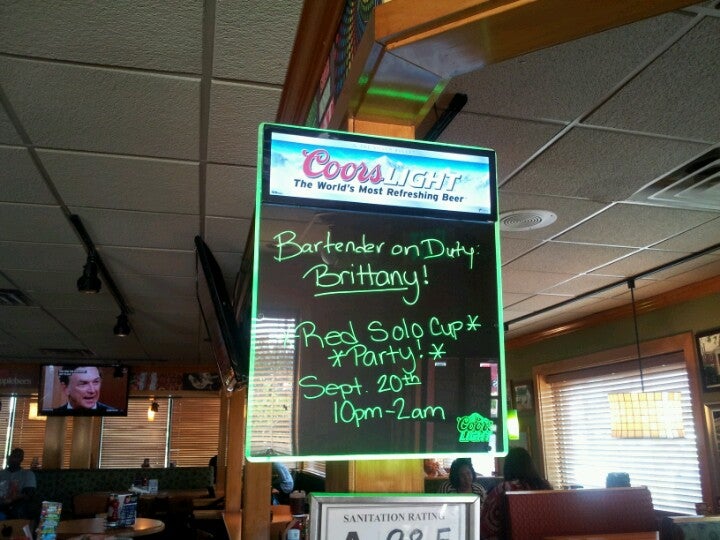 Coors LIGHT
The World's Most Refreshing Beer
Bartender on Duty:
Brittany!
*Red Solo Cup*
*Party!*
Sept. 20th
10pm-2am
Coors
LIGHT
SANITATION RATING
A 98.5